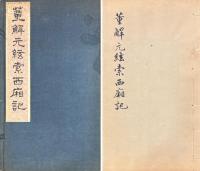 董解元絃索西廂記
董解元絃索西廂記